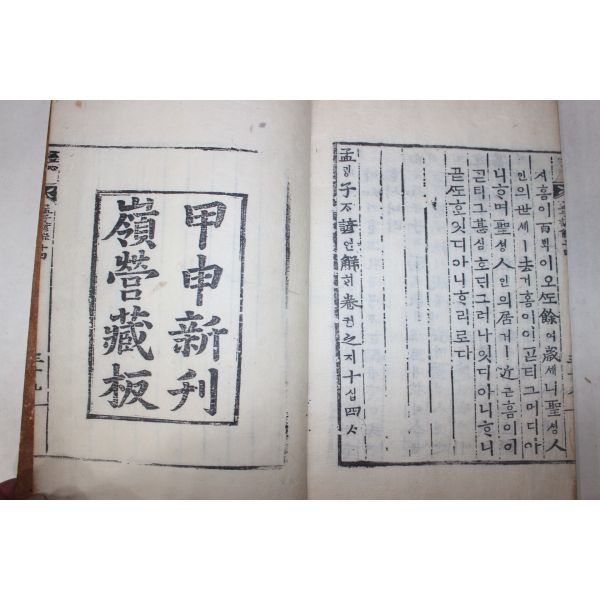 셔홈이百ᄇᆡᆨ이오ᄯᅩ餘여歲셰니聖셩人
인의世셰ㅣ去거홈이이ᄀᆞᆮ티그머디아
니ᄒᆞ며聖셩人인의居거ㅣ近근홈이이
ᄀᆞᆮ티그甚심호ᄃᆡ그러나잇디아니ᄒᆞ니
곧ᄯᅩᄒᆞᆫ잇디아니ᄒᆞ리로다
孟ᄆᆡᆼ子ᄌᆞ諺언解ᄒᆡ卷권之지十십四ᄉᆞ
甲申新刊
嶺營藏板
三十九